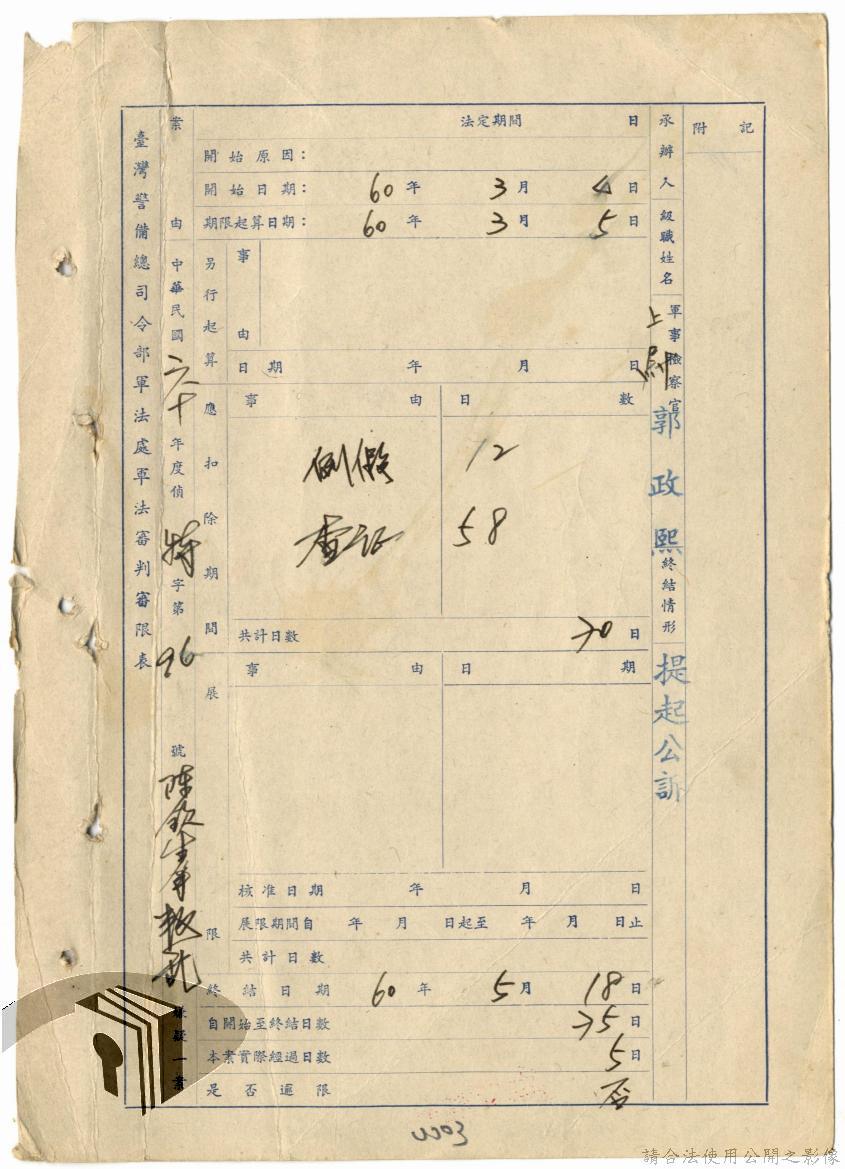 臺灣警備總司令部軍法處軍法審判審限表
案由 中華民國六十年度偵特字第96號陳欽生等叛亂嫌疑一案
法定期間 日
開始原因：
開始日期： 60年 3月 4日
期限起算日期： 60年 3月 5日
另行起算 事由
日期 年 月 日
應扣除期間 事由 日數
例假 12
查證 58
共計日數 70日
展限 事由 日期
核准日期 年 月 日
展限期間自 年 月 日起至 年 月 日止
共計日數
終結日期 60年 5月 18日
自開始至終結日數 75日
本案實際經過日數 5日
是否逾限 否
承辦人級職姓名 軍事檢察官 上尉 郭政熙
終結情形 提起公訴
附記
請合法使用公開之影像